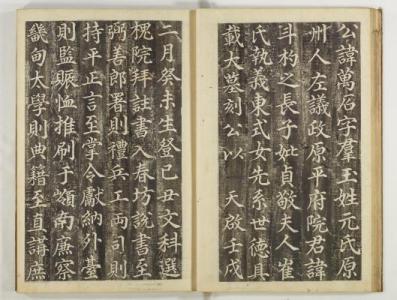 公諱萬石字羣玉姓元氏原
州人左議政原平府院君諱
斗杓之長子妣貞敬夫人崔
氏執義東式女先系世德具
載大墓刻公以 天啟壬戌
二月癸未生登己丑文科選
槐院拜註書入春坊說書至
弼善郎署則禮兵工兩司則
持平正言至掌令獻納外臺
則監賑恤推刷于嶺南廉察
畿甸太學則典籍至直講庶